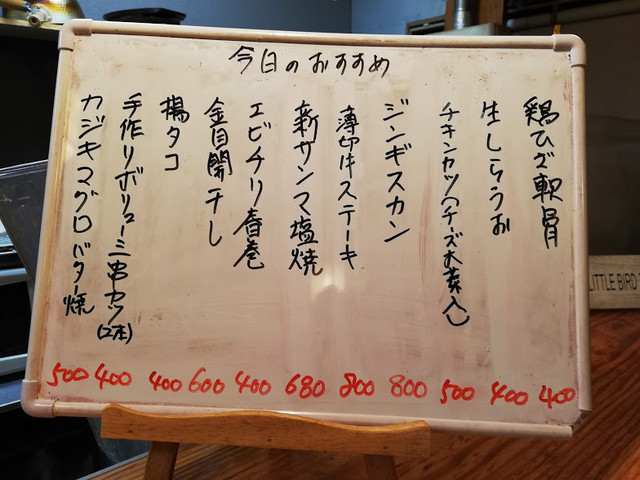 今日のおすすめ
鶏ひざ軟骨
400
生しらうお
400
チキンカツ(チーズ大葉入)
500
ジンギスカン
800
薄切牛ステーキ
800
新サンマ塩焼
680
エビチリ春巻
400
金目開干し
600
揚タコ
400
手作りボリューミー串カツ(2本)
400
カジキマグロバター焼
500
LITTLE BIRD